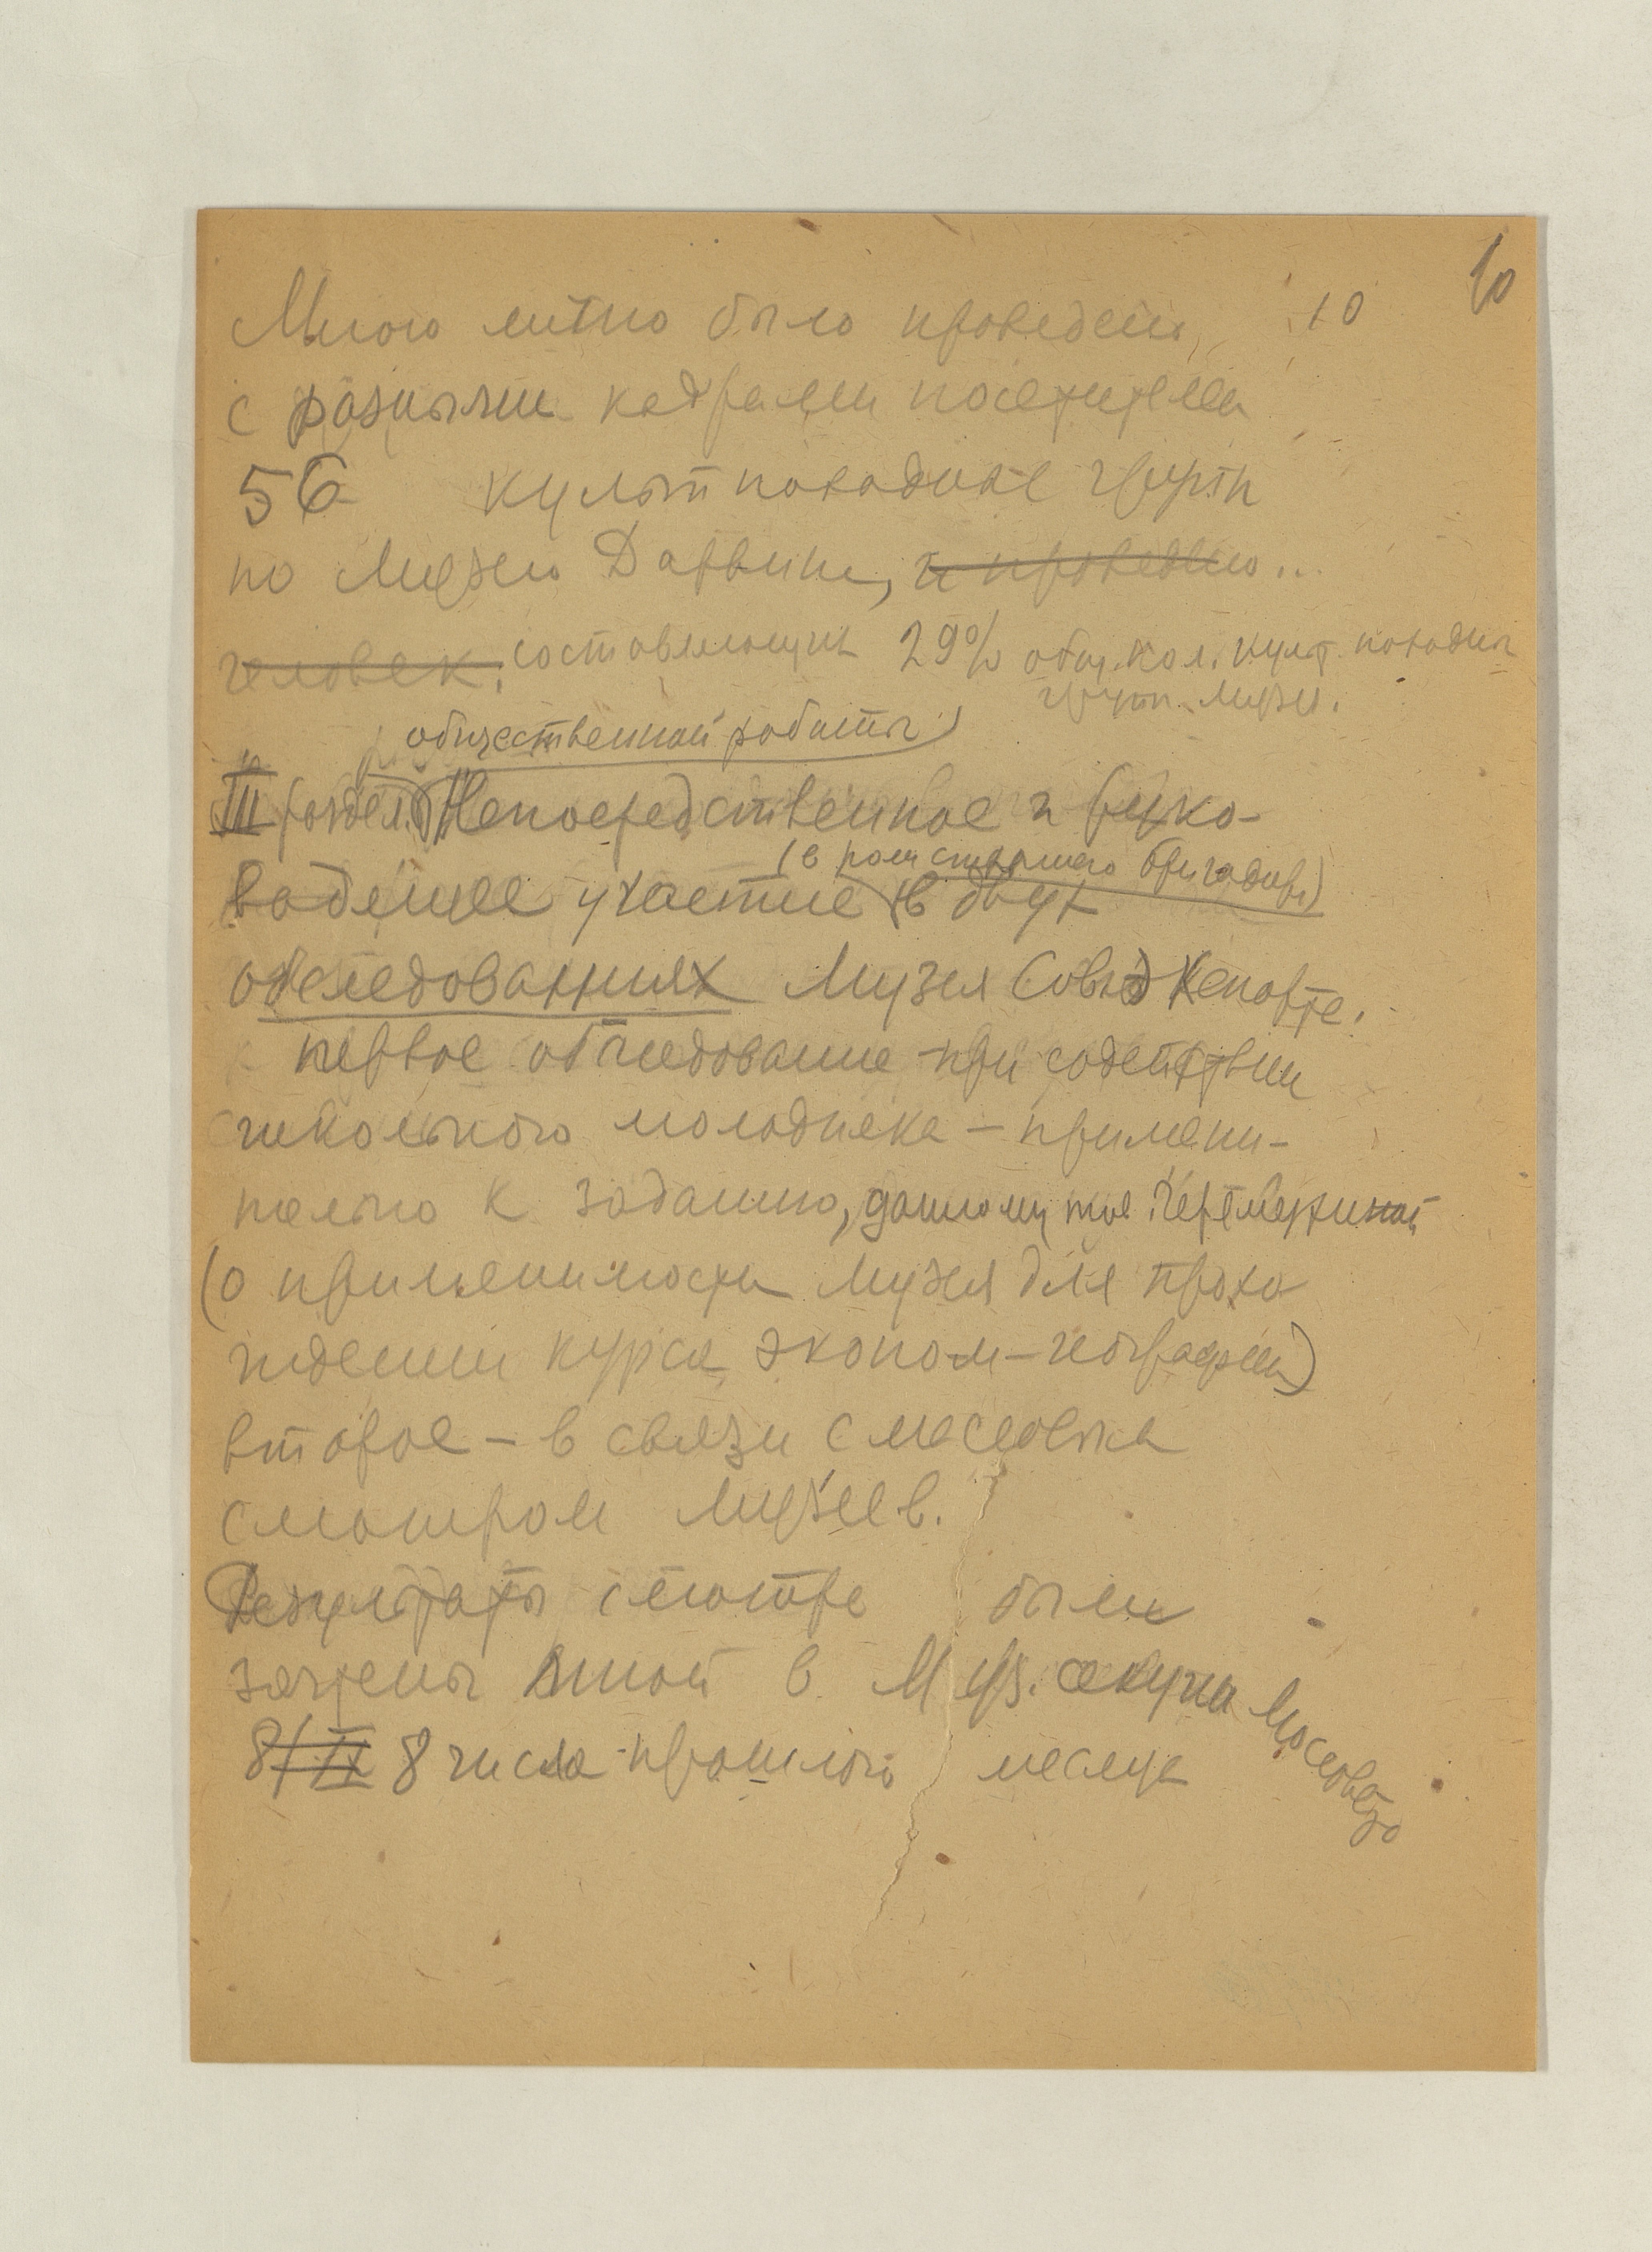 10
Мною лично было проведено 10
с разными кадрами посетителей
56 культпоходных групп
по Музею Дарвина, и проведено...
человек. составляющих 29% общ. кол. культ. походных
групп музея.
общественной работы)
III раздел (Непосредственное и руко-
(в роли старшего бригадира)
водящее участие в двух
обследованиях Музея Совета
первое обследование при содействии
школьного молодняка – примени-
тельно к заданию, данному мне
(о применимости Музея для прохо
ждении курса эконом – географии)
второе – в связи с массовым
смотром музеев.
Результаты смотра были
зачтены мной в Муз. секции Моссовета
8/IX 8 числа прошлого месяца